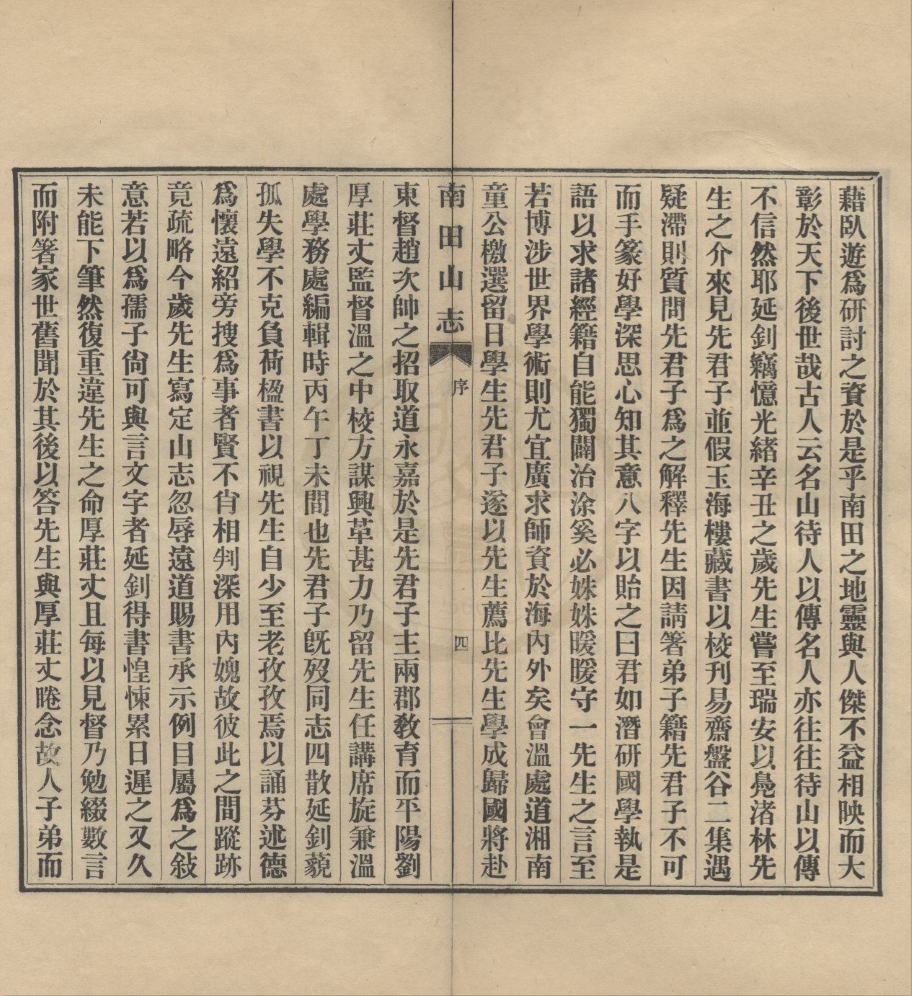 藉臥遊爲研討之資於是乎南田之地靈與人傑不益相映而大
彰於天下後世哉古人云名山待人以傳名人亦往往待山以傳
不信然耶延釗竊憶光緒辛丑之歲先生嘗至瑞安以鳧渚林先
生之介來見先君子並假玉海樓藏書以校刊易齋盤谷二集遇
疑滯則質問先君子爲之解釋先生因請箸弟子籍先君子不可
而手篆好學深思心知其意八字以貽之曰君如潛研國學執是
語以求諸經籍自能獨闢治涂奚必姝姝暖暖守一先生之言至
若博涉世界學術則尤宜廣求師資於海內外矣會溫處道湘南
童公檄選留日學生先君子遂以先生薦比先生學成歸國將赴
南田山志
序
四
東督趙次帥之招取道永嘉於是先君子主兩郡敎育而平陽劉
厚莊丈監督溫之中校方謀興革甚力乃留先生任講席旋兼溫
處學務處編輯時丙午丁未間也先君子旣歿同志四散延釗藐
孤失學不克負荷楹書以視先生自少至老孜孜焉以誦芬述德
爲懷遠紹旁搜爲事者賢不肖相判深用內媿故彼此之間蹤跡
竟疏略今歲先生寫定山志忽辱遠道賜書承示例目屬爲之敍
意若以爲孺子尙可與言文字者延釗得書惶悚累日遲之又久
未能下筆然復重違先生之命厚莊丈且每以見督乃勉綴數言
而附箸家世舊聞於其後以答先生與厚莊丈睠念故人子弟而